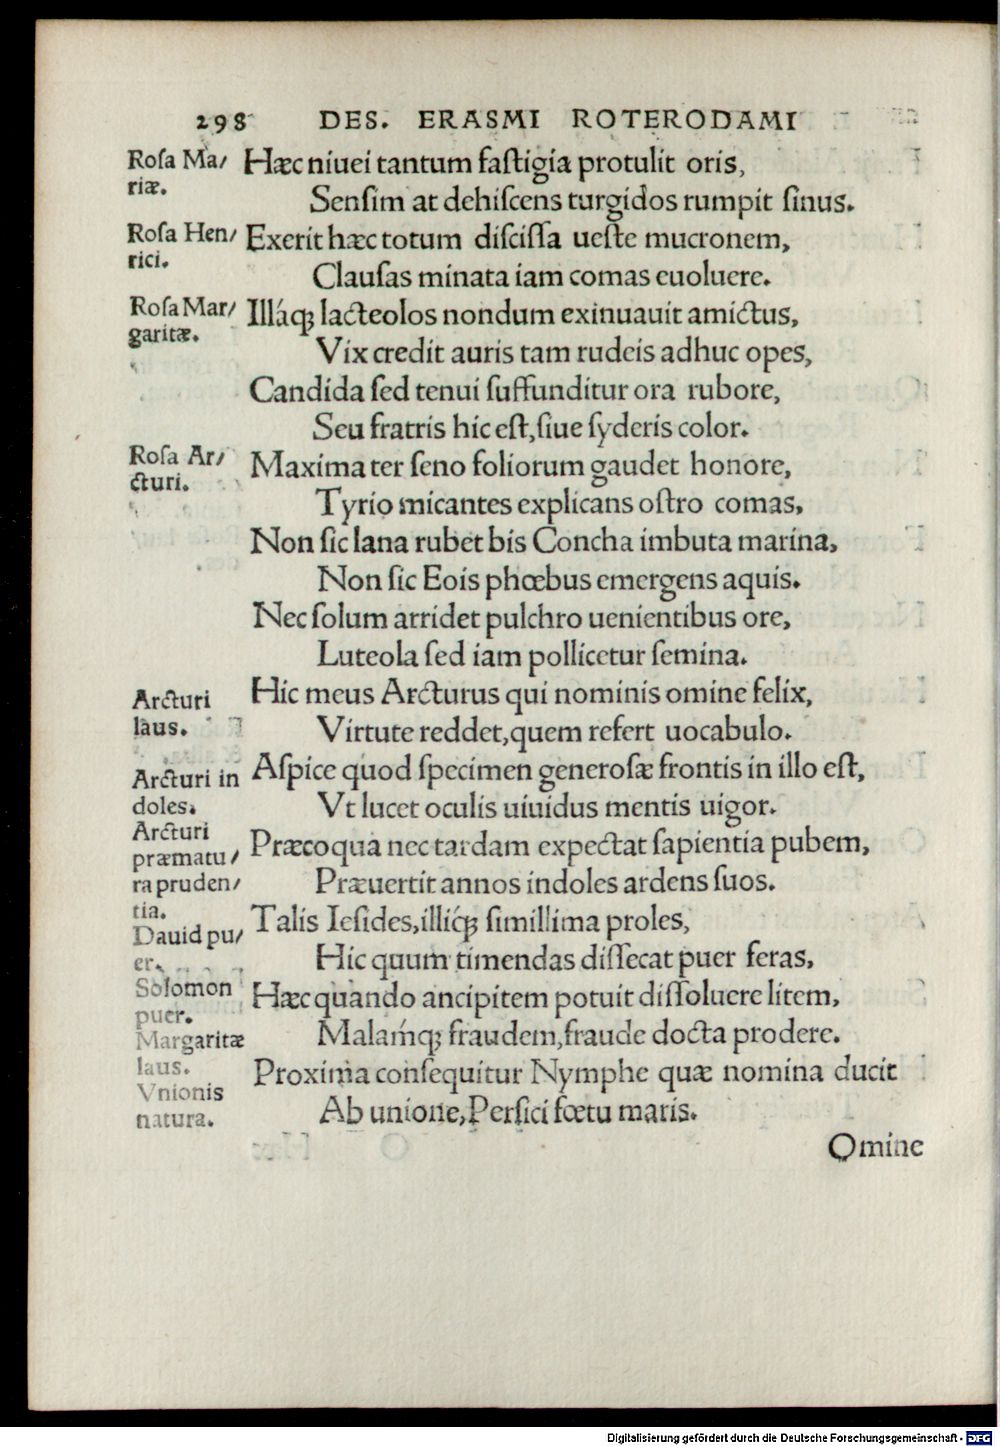 298 DES. ERASMI ROTERODAMI
Roſa Ma/
riæ.
Hæc niuei tantum faſtigia protulit oris,
Senſim at dehiſcens turgidos rumpit ſinus.
Roſa Hen/
rici.
Exerit hæc totum diſciſſa ueſte mucronem,
Clauſas minata iam comas euoluere.
Roſa Mar/
garitæ.
Illáq; lacteolos nondum exinuauit amictus,
Vix credit auris tam rudeis adhuc opes,
Candida ſed tenui ſuffunditur ora rubore,
Seu fratris hic eſt, ſiue ſyderis color.
Roſa Ar/
cturi.
Maxima ter ſeno foliorum gaudet honore,
Tyrio micantes explicans oſtro comas,
Non ſic lana rubet bis Concha imbuta marina,
Non ſic Eois phœbus emergens aquis.
Nec ſolum arridet pulchro uenientibus ore,
Luteola ſed iam pollicetur ſemina.
Arcturi
laus.
Hic meus Arcturus qui nominis omine felix,
Virtute reddet, quem refert uocabulo.
Arcturi in
doles.
Aſpice quod ſpecimen generoſæ frontis in illo eſt,
Vt lucet oculis uiuidus mentis uigor.
Arcturi
præmatu/
ra pruden/
tia.
Præcoqua nec tardam expectat ſapientia pubem,
Præuertit annos indoles ardens ſuos.
Dauid pu/
er.
Talis Ieſides, illíq; ſimillima proles,
Hic quum timendas diſſecat puer feras,
Solomon
puer.
Hæc quando ancipitem potuit diſſoluere litem,
Malaḿq; fraudem, fraude docta prodere.
Margaritæ
laus.
Vnionis
natura.
Proxima conſequitur Nymphe quæ nomina ducit
Ab unione, Perſici fœtu maris.
Omine
Digitalisierung gefördert durch die Deutsche Forschungsgemeinschaft - DFG